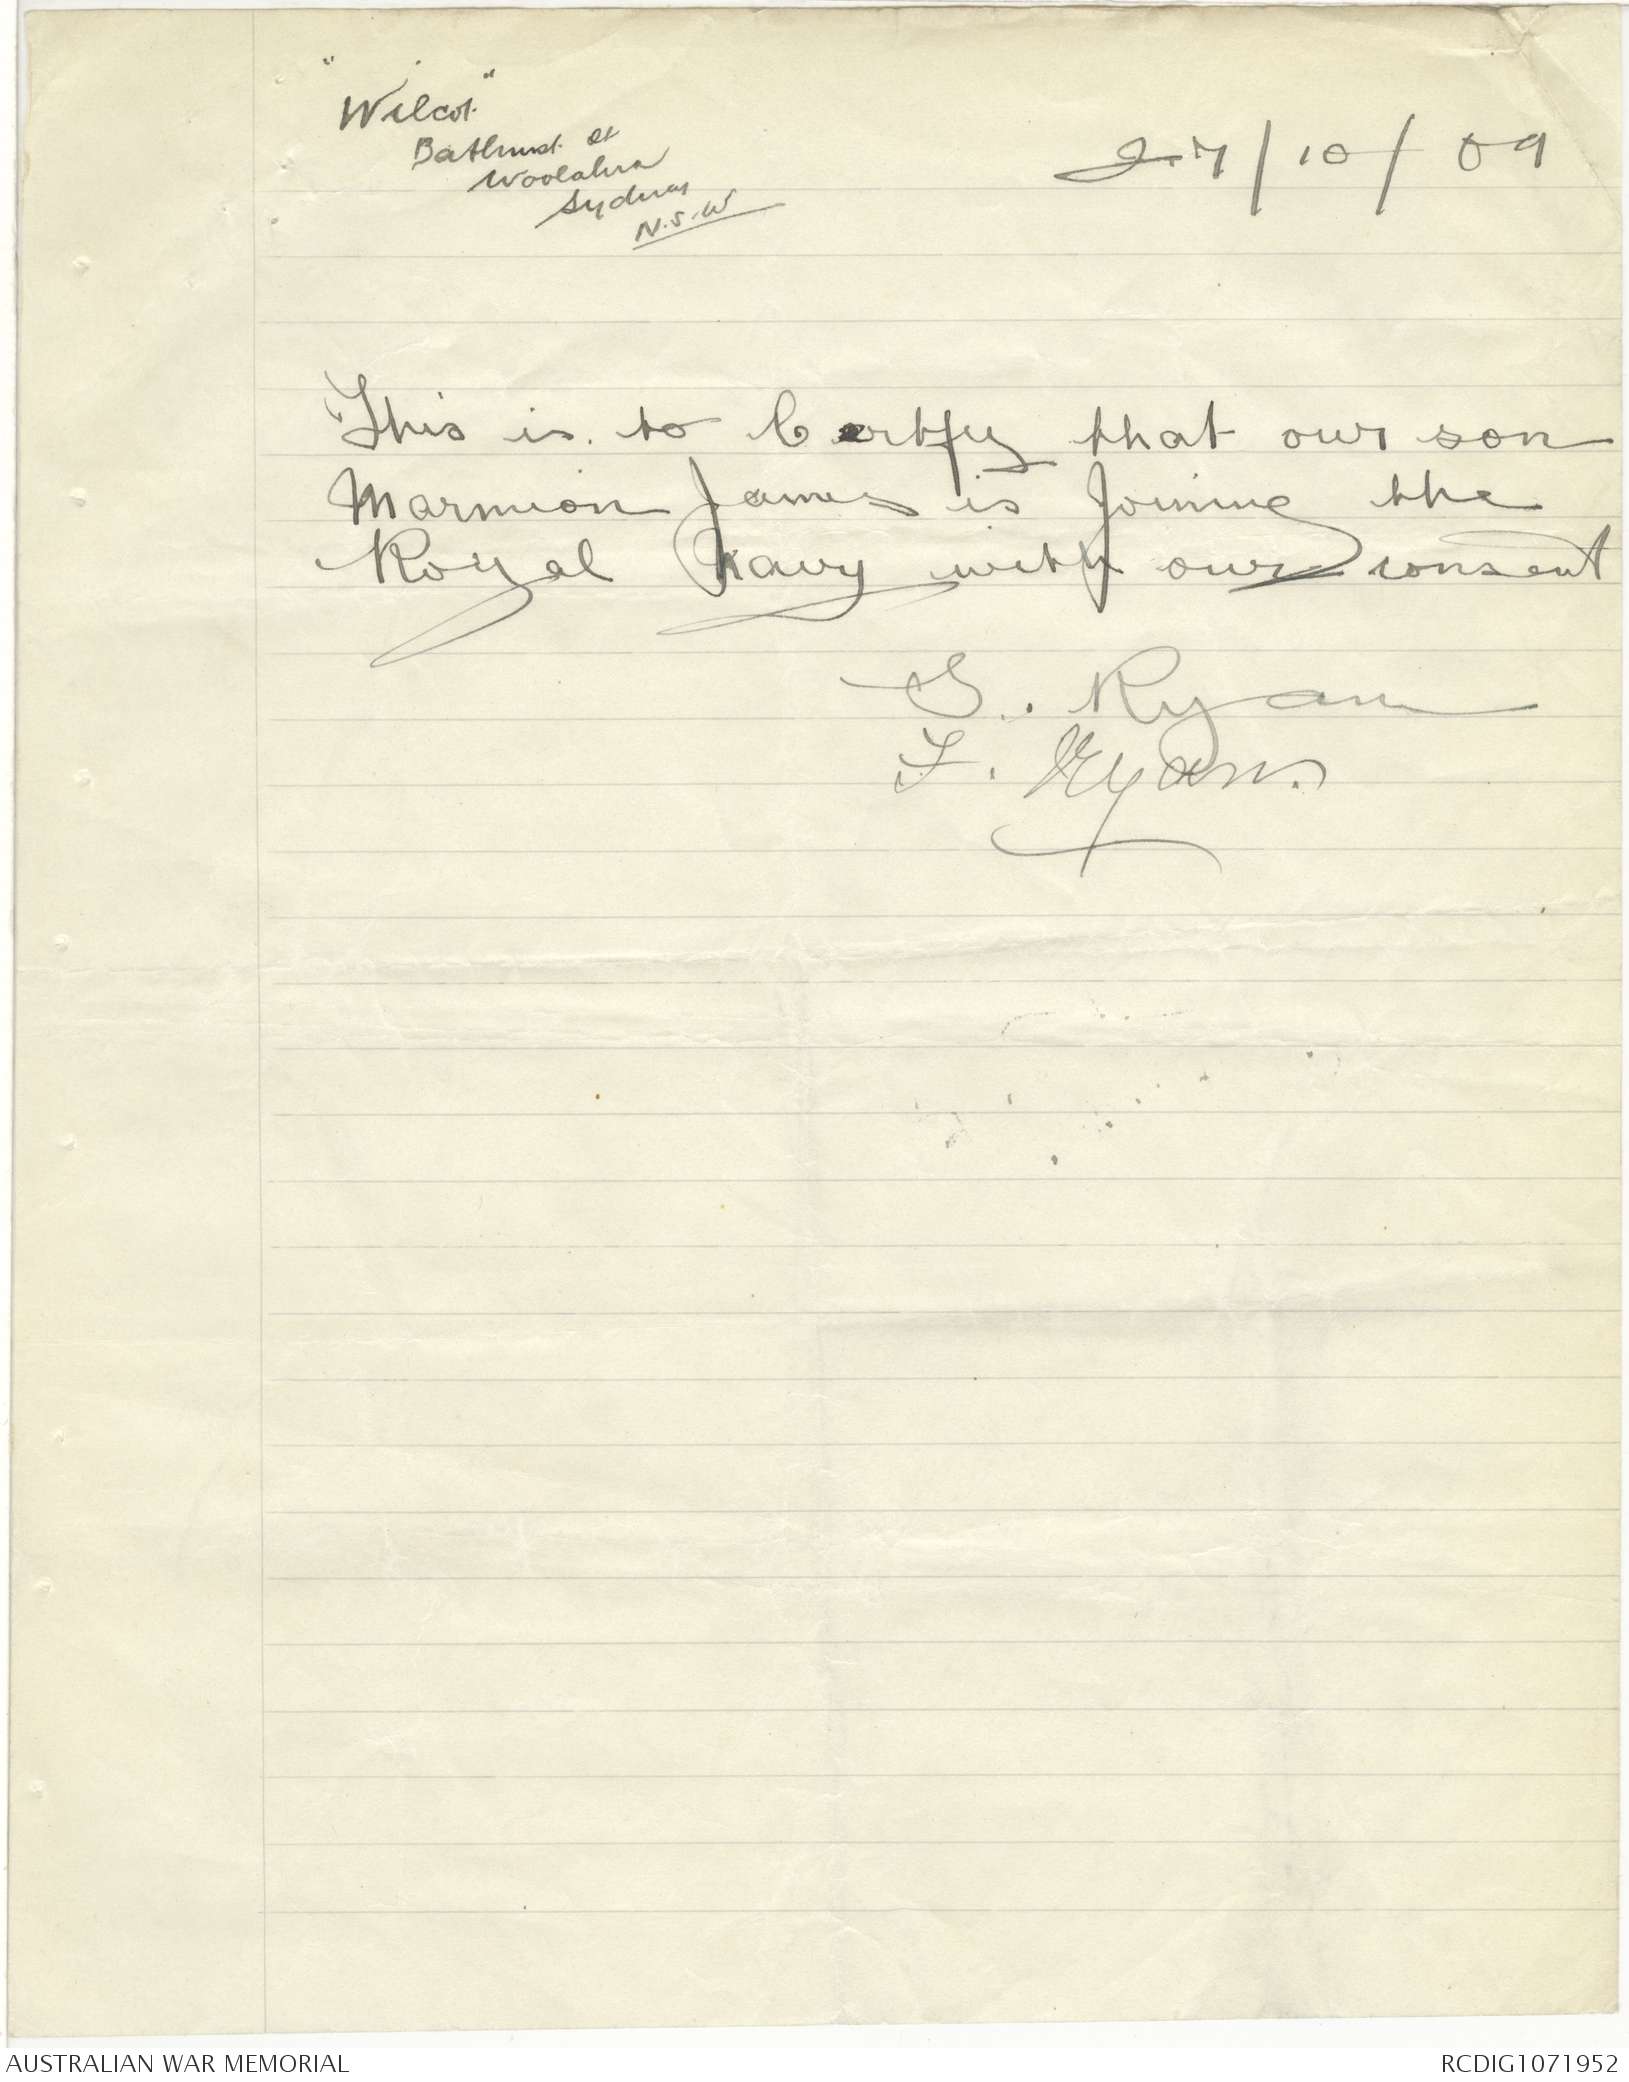 "Wilcot"
Bathurst St
Woolahra
Sydney
N.S.W
27/10/09
This is to Certfy that our son
Marmion James is Joining the
Royal Navy with our consent
S. Ryan
F. Ryan.
AUSTRALIAN WAR MEMORIAL
RCDIG1071952